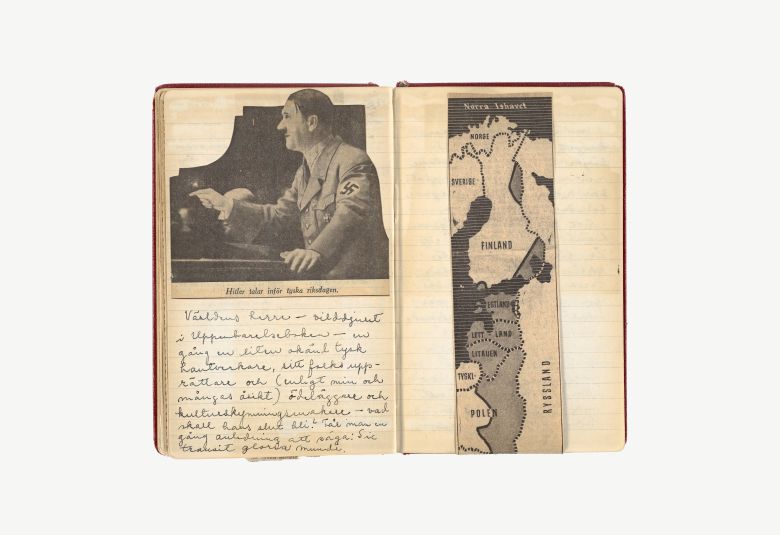 Hitler talar inför tyska riksdagen.
Världens herre – vilddjuret
i Uppenbarelseboken – en
gång en liten okänd tysk
hantverkare, sitt folks upp-
rättare och (enligt min och
mångas åsikt) ödeläggare och
kulturskymningsmakare – vad
skall hans slut bli? Får man en
gång anledning att säga: Sic
transit gloria mundi.
Norra Ishavet
NORGE
SVERIGE
FINLAND
ESTLAND
LETT
LAND
LITAUEN
TYSKL.
POLEN
RYSSLAND